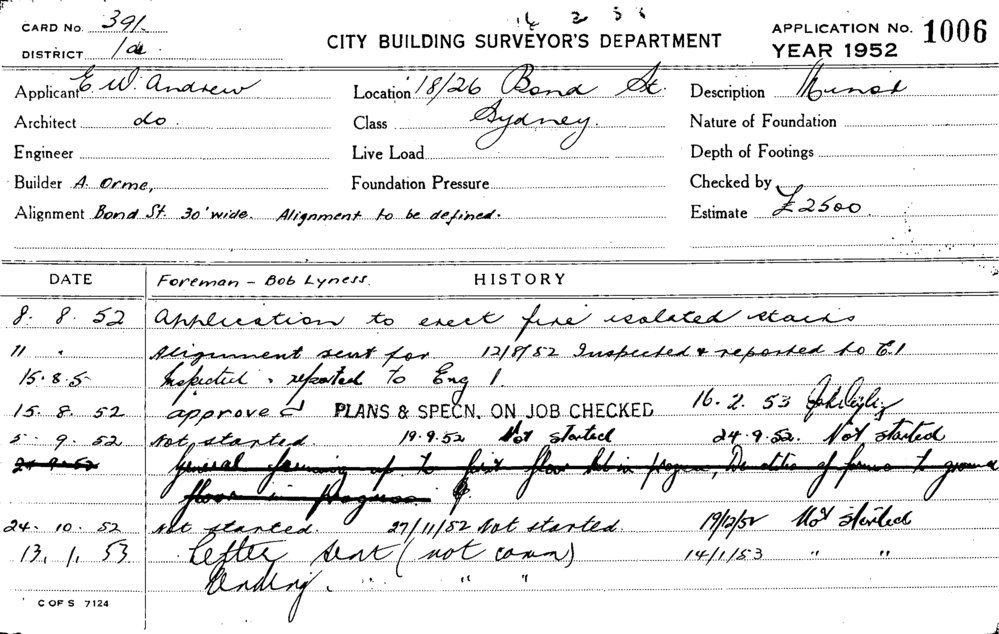 CARD No. 391.
DISTRICT 1a
CITY BUILDING SURVEYOR'S DEPARTMENT
APPLICATION No. 1006
YEAR 1952
Applicant E. W. Andrew Location 18/26 Bond St. Description Minor
Architect do. Class Sydney. Nature of Foundation
Engineer Live Load Depth of Footings
Builder A. Orme, Foundation Pressure Checked by
Alignment Bond St. 30' wide. Alignment to be defined. Estimate £2500
DATE Foreman - Bob Lyness. HISTORY
8. 8. 52 Application to erect fire isolated stairs
11 " Alignment sent for 12/8/52 Inspected & reported to E.1
15.8.5 Inspected & reported to Eng 1
15. 8. 52 approved PLANS & SPECN. ON JOB CHECKED 16. 2. 53
5. 9. 52 Not started. 19.9.52 Not started 24.9.52. Not started
General forming up to first floor in progress, of forms to ground
floor in progress.
24. 10. 52 Not started. 27/11/52 Not started. 19/12/52 Not started
13. 1. 53 Letter sent (not comm) 14/1/53 " "
Pending. " "
C OF S 7124